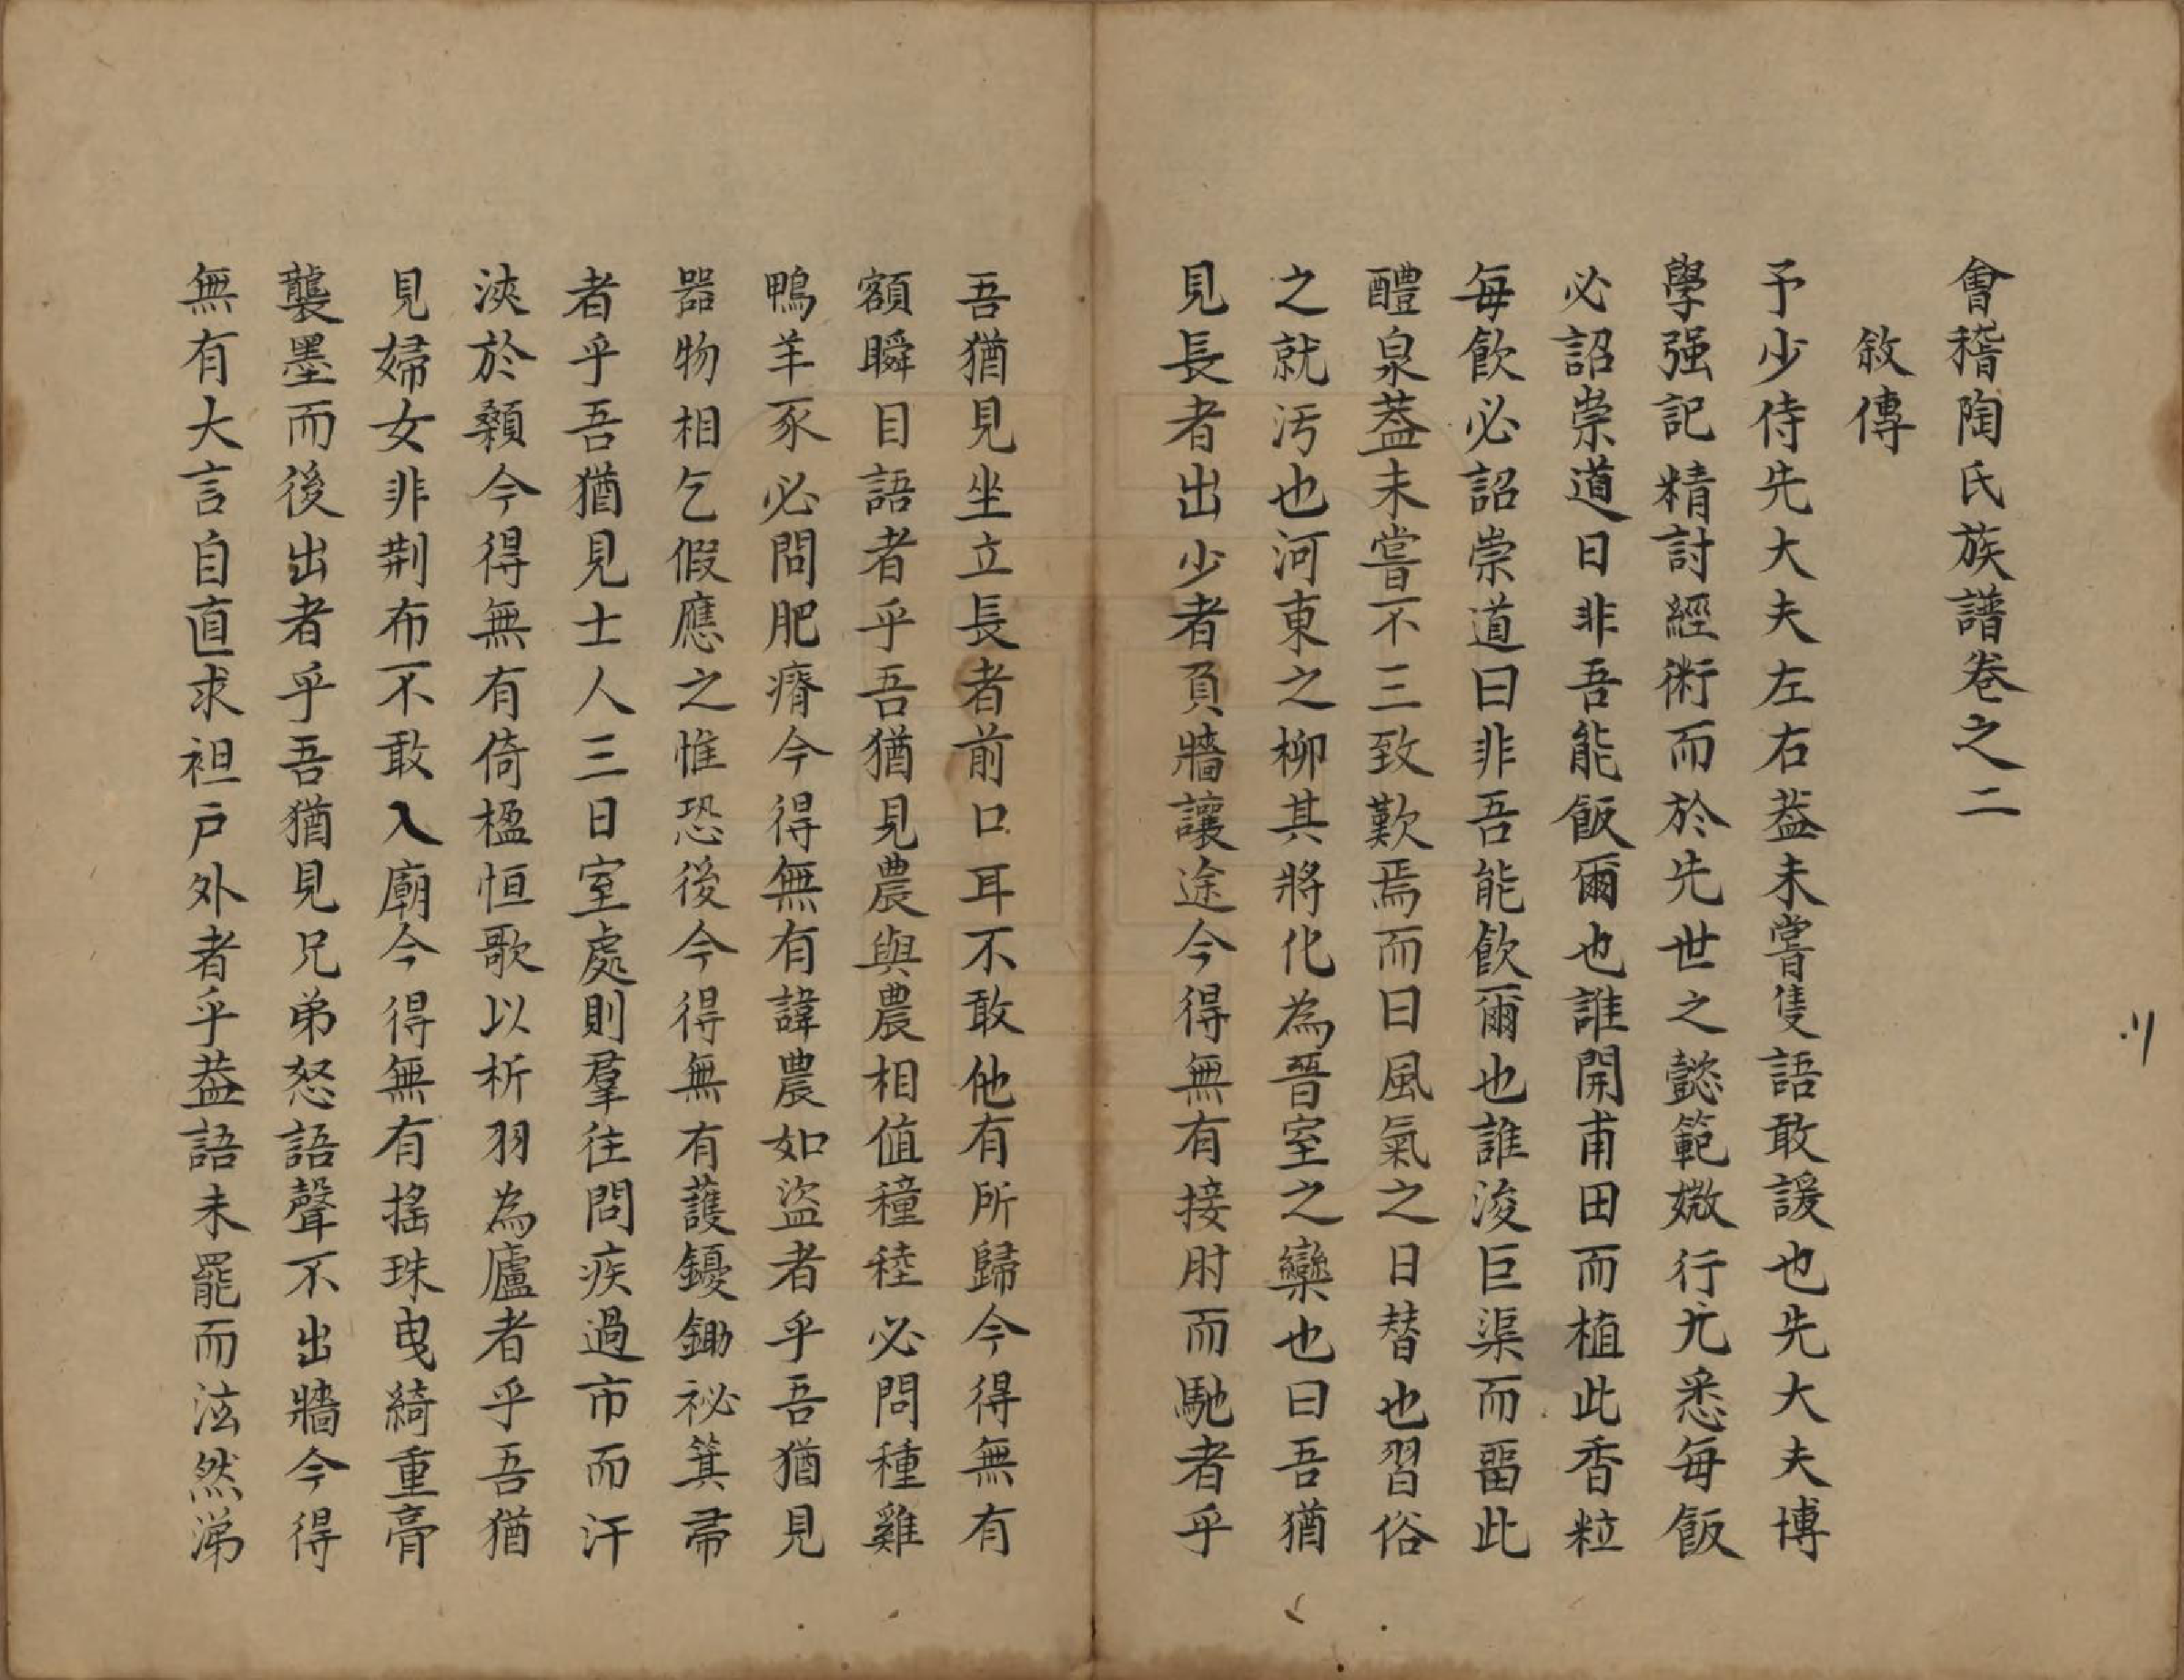 會稽陶氏族譜卷之二
敘傳
予少侍先大夫左右葢未嘗隻語敢諼也先大夫博
學强記精討經術而於先世之懿範媺行尤悉每飯
必詔崇道曰非吾能飯爾也誰開甫田而植此香粒
每飲必詔崇道曰非吾能飲爾也誰浚巨渠而畱此
醴泉葢未嘗不三致歎焉而曰風氣之日替也習俗
之就汚也河東之柳其將化為晉室之欒也曰吾猶
見長者出少者負牆讓途今得無有接肘而馳者乎
吾猶見坐立長者前口耳不敢他有所歸今得無有
額瞬目語者乎吾猶見農與農相値穜稑必問種雞
鴨羊豕必問肥瘠今得無有諱農如盜者乎吾猶見
器物相乞假應之惟恐後今得無有護鍰鋤祕箕帚
者乎吾猶見士人三日室處則羣往問疾過市而汗
浹於顙今得無有倚楹恒歌以析羽為廬者乎吾猶
見婦女非荆布不敢入廟今得無有搖珠曳綺重膏
襲墨而後出者乎吾猶見兄弟怒語聲不出牆今得
無有大言自直求袒戶外者乎葢語未罷而泫然涕